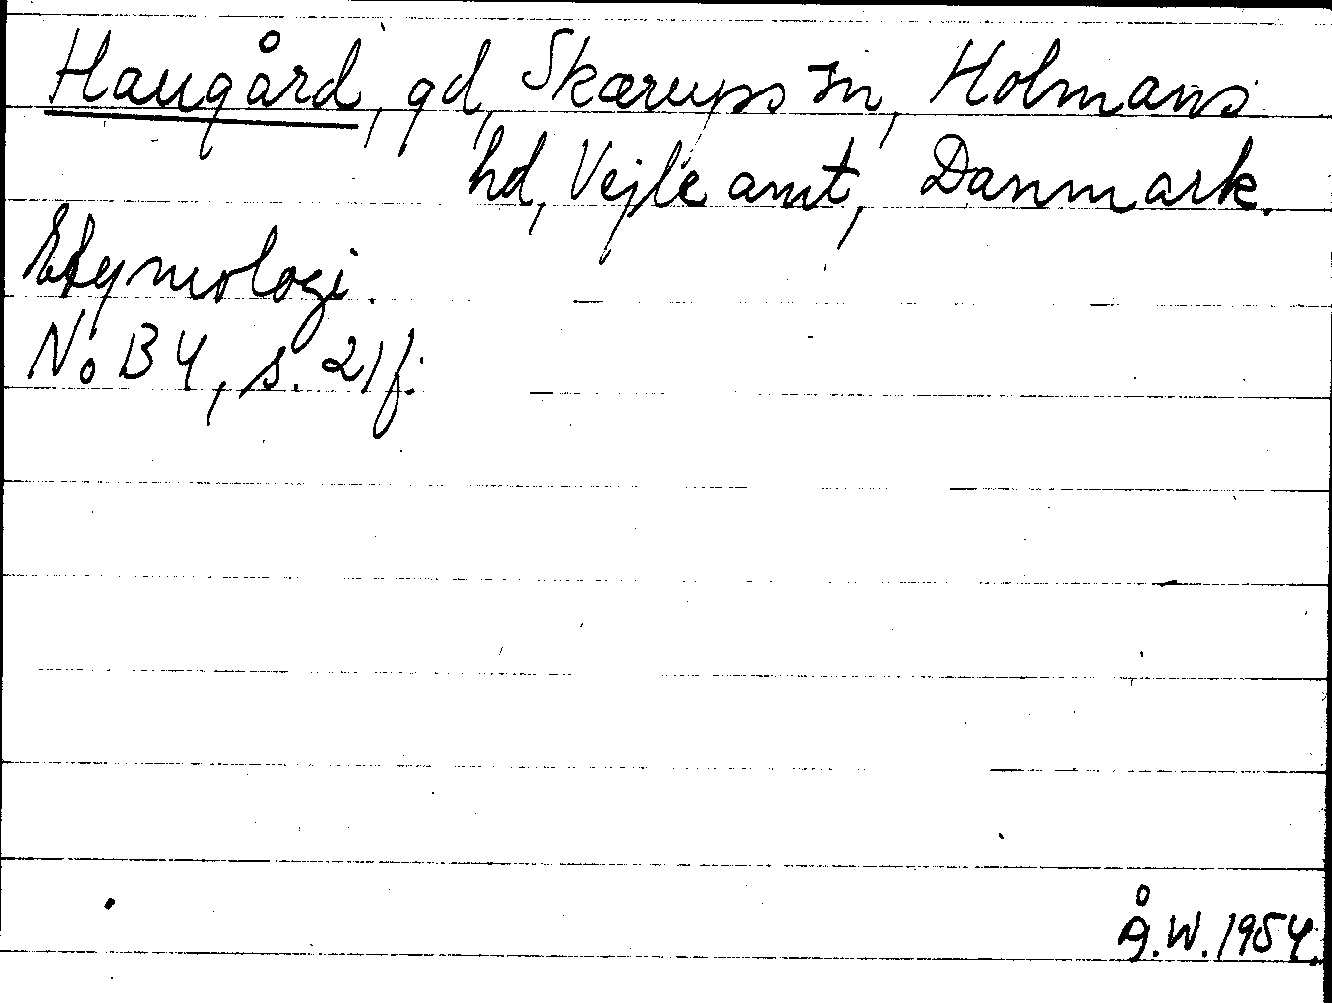 Haugård, gd, Skærups sn, Holmans
hd, Vejle amt, Danmark.
Etymologi.
NoB 4, s. 21 f.
Å.W. 1954.